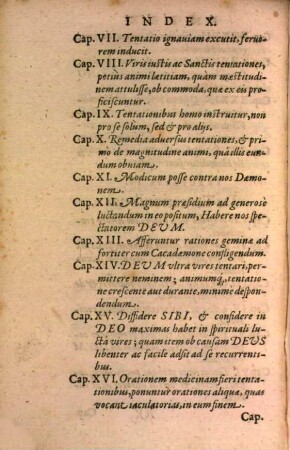 INDEX.
Cap. VII. Tentatio ignauiam excutit, feruo-
rem inducit.
Cap. VIII. Viris iustis ac Sanctis tentationes,
potius animi lætitiam, quàm mœstitudi-
nem attulisse, ob commoda, quæ ex eis pro-
ficiscuntur.
Cap. IX. Tentationibus homo instruitur, non
pro se solum, sed & pro alijs.
Cap. X. Remedia aduersus tentationes, & pri-
mò de magnitudine animi, quâ illis eun-
dum obuiam.
Cap. XI. Modicum posse contra nos Dæmo-
nem.
Cap. XII. Magnum præsidium ad generosè
luctandum in eo positum, Habere nos spe-
ctatorem DEVM.
Cap. XIII. Afferuntur rationes geminæ ad
fortiter cum Cacodæmone confligendum.
Cap. XIV. DEVM vltra vires tentari, per-
mittere neminem; animumq́, tentatione
crescente aut durante, minimè despon-
dendum.
Cap. XV. Diffidere SIBI, & confidere in
DEO maximas habet in spirituali lu-
ctâ vires; quam item ob causam DEVS
libenter ac facilè adsit ad se recurrenti-
bus.
Cap. XVI. Orationem medicinam fieri tenta-
tionibus, ponuntur orationes aliquæ, quas
vocant iaculatorias, in eum finem.
Cap.